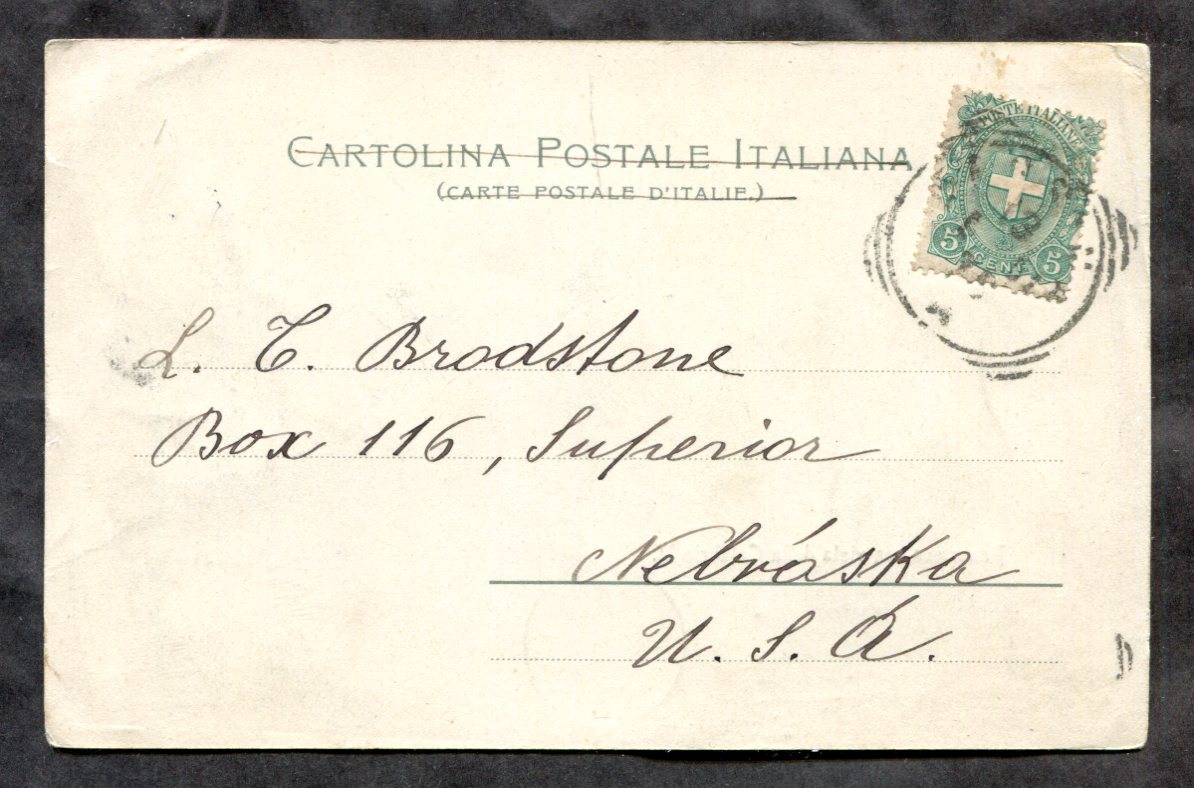 CARTOLINA POSTALE ITALIANA
(CARTE POSTALE D'ITALIE.)
POSTE ITALIANE
5 CENT 5
L. C. Brodstone
Box 116, Superior
Nebráska
U. S. Á.